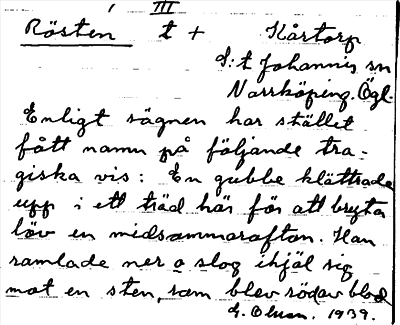 III
Rösten t + Kårtorp
S:t Johannis sn
Norrköping. Ögl.
Enligt sägnen har stället
fått namn på följande tra-
giska vis: En gubbe klättrade
upp i ett träd här för att bryta
löv en midsommarafton. Han
ramlade ner o slog ihjäl sig
mot en sten, som blev röd av blod
1939.